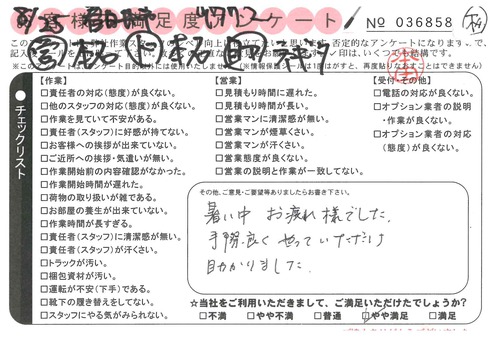 お客様満足度アンケート
No 036858
チェックリスト
【作業】
□責任者の対応(態度)が良くない。
□他のスタッフの対応(態度)が良くない。
□作業を見ていて不安がある。
□責任者(スタッフ)に好感が持てない。
□お客様への挨拶が出来ていない。
□ご近所への挨拶・気遣いが無い。
□作業開始前の内容確認がなかった。
□作業開始時間が遅れた。
□荷物の取り扱いが雑である。
□お部屋の養生が出来ていない。
□作業時間が長すぎる。
□責任者(スタッフ)に清潔感が無い。
□責任者(スタッフ)が汗くさい。
□トラックが汚い。
□梱包資材が汚い。
□運転が不安(下手)である。
□靴下の履き替えをしてない。
□スタッフにやる気がみられない。
【営業】
□見積もり時間に遅れた。
□見積もり時間が長い。
□営業マンに清潔感が無い。
□営業マンが煙草くさい。
□営業マンが汗くさい。
□営業態度が良くない。
□営業の説明と作業が一致してない。
【受付・その他】
□電話の対応が良くない。
□オプション業者の説明
・作業が良くない。
□オプション業者の対応
(態度)が良くない。
その他、ご意見・ご要望等ありましたらお書き下さい。
暑い中 お疲れ様でした。
手際良く やっていただけ
助かりました。
☆当社をご利用いただきまして、ご満足いただけたでしょうか?
□不満 □やや不満 □普通 □やや満足 □満足